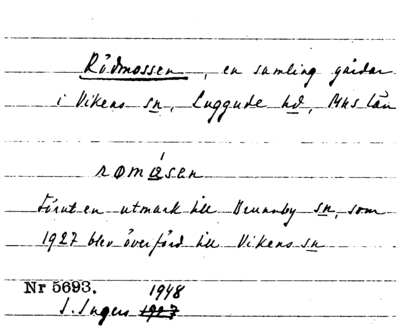 Rödmossen, en samling gårdar
i Vikens sn, Luggude hd, Mhs län
romåsen
Förut en utmark till Brunnby sn, som
1927 blev överförd till Vikens sn
Nr 5693. 1948
I. Ingers 1927